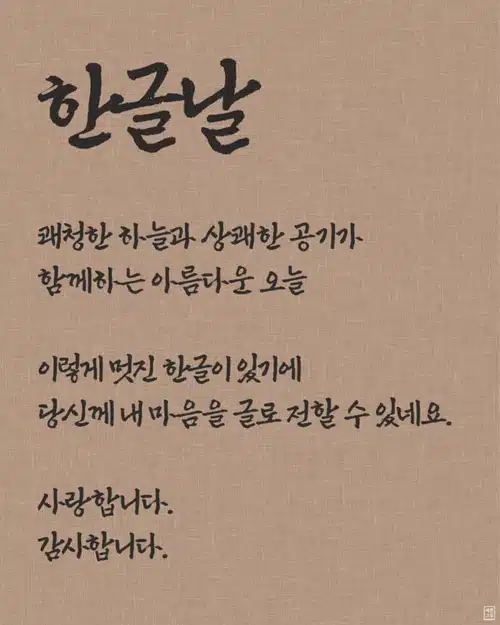 한글날
쾌청한 하늘과 상쾌한 공기가
함께하는 아름다운 오늘
이렇게 멋진 한글이 있기에
당신께 내 마음을 글로 전할 수 있네요.
사랑합니다.
감사합니다.